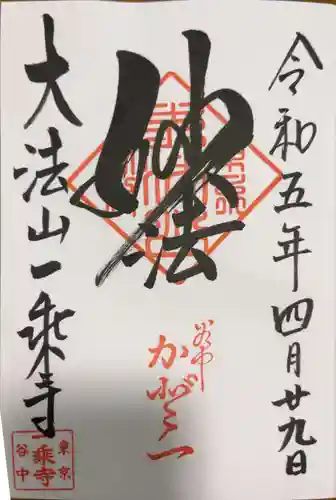 令和五年四月廿九日
妙法
谷中
かざふ一
大法山一乗寺
東京
一乗寺
谷中